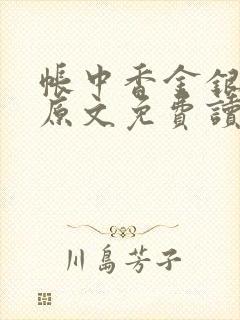 帳中香金銀
原文免費讀
川島芳子